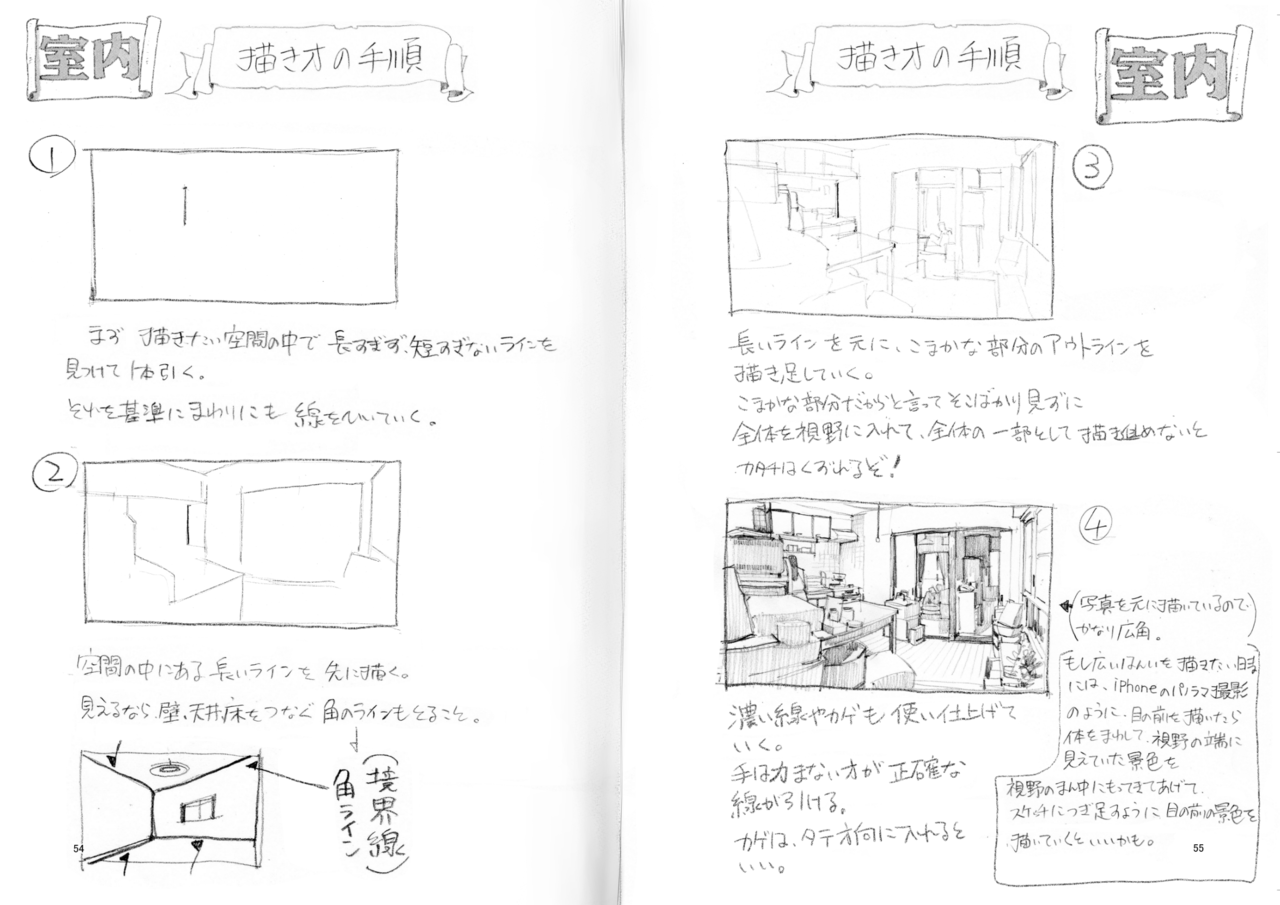 室内
描き方の手順
①
まず 描きたい空間の中で 長すぎず、短すぎないラインを
見つけて1本引く。
それを基準にまわりにも 線をひいていく。
②
空間の中にある 長いラインを 先に描く。
見えるなら、壁、天井、床をつなぐ 角のラインもとること。
角ライン
(境界線)
54
描き方の手順
室内
③
長いラインを元に、こまかな部分のアウトラインを
描き足していく。
こまかな部分だからと言ってそこばかり見ずに
全体を視野に入れて、全体の一部として描き進めないと
カタチはくずれるぞ!
④
(写真を元に描いているので
かなり広角。)
濃い線やカゲも 使い仕上げて
いく。
手は力まない方が 正確な
線が引ける。
カゲは、タテ方向に入れると
いい。
もし広いはんいを 描きたい時
には、iPhoneのパノラマ撮影
のように、目の前を描いたら
体をまわして、視野の端に
見えていた景色を
視野のまん中にもってきてあげて、
スケッチにつぎ足すように 目の前の景色を
描いていくといいかも。
55